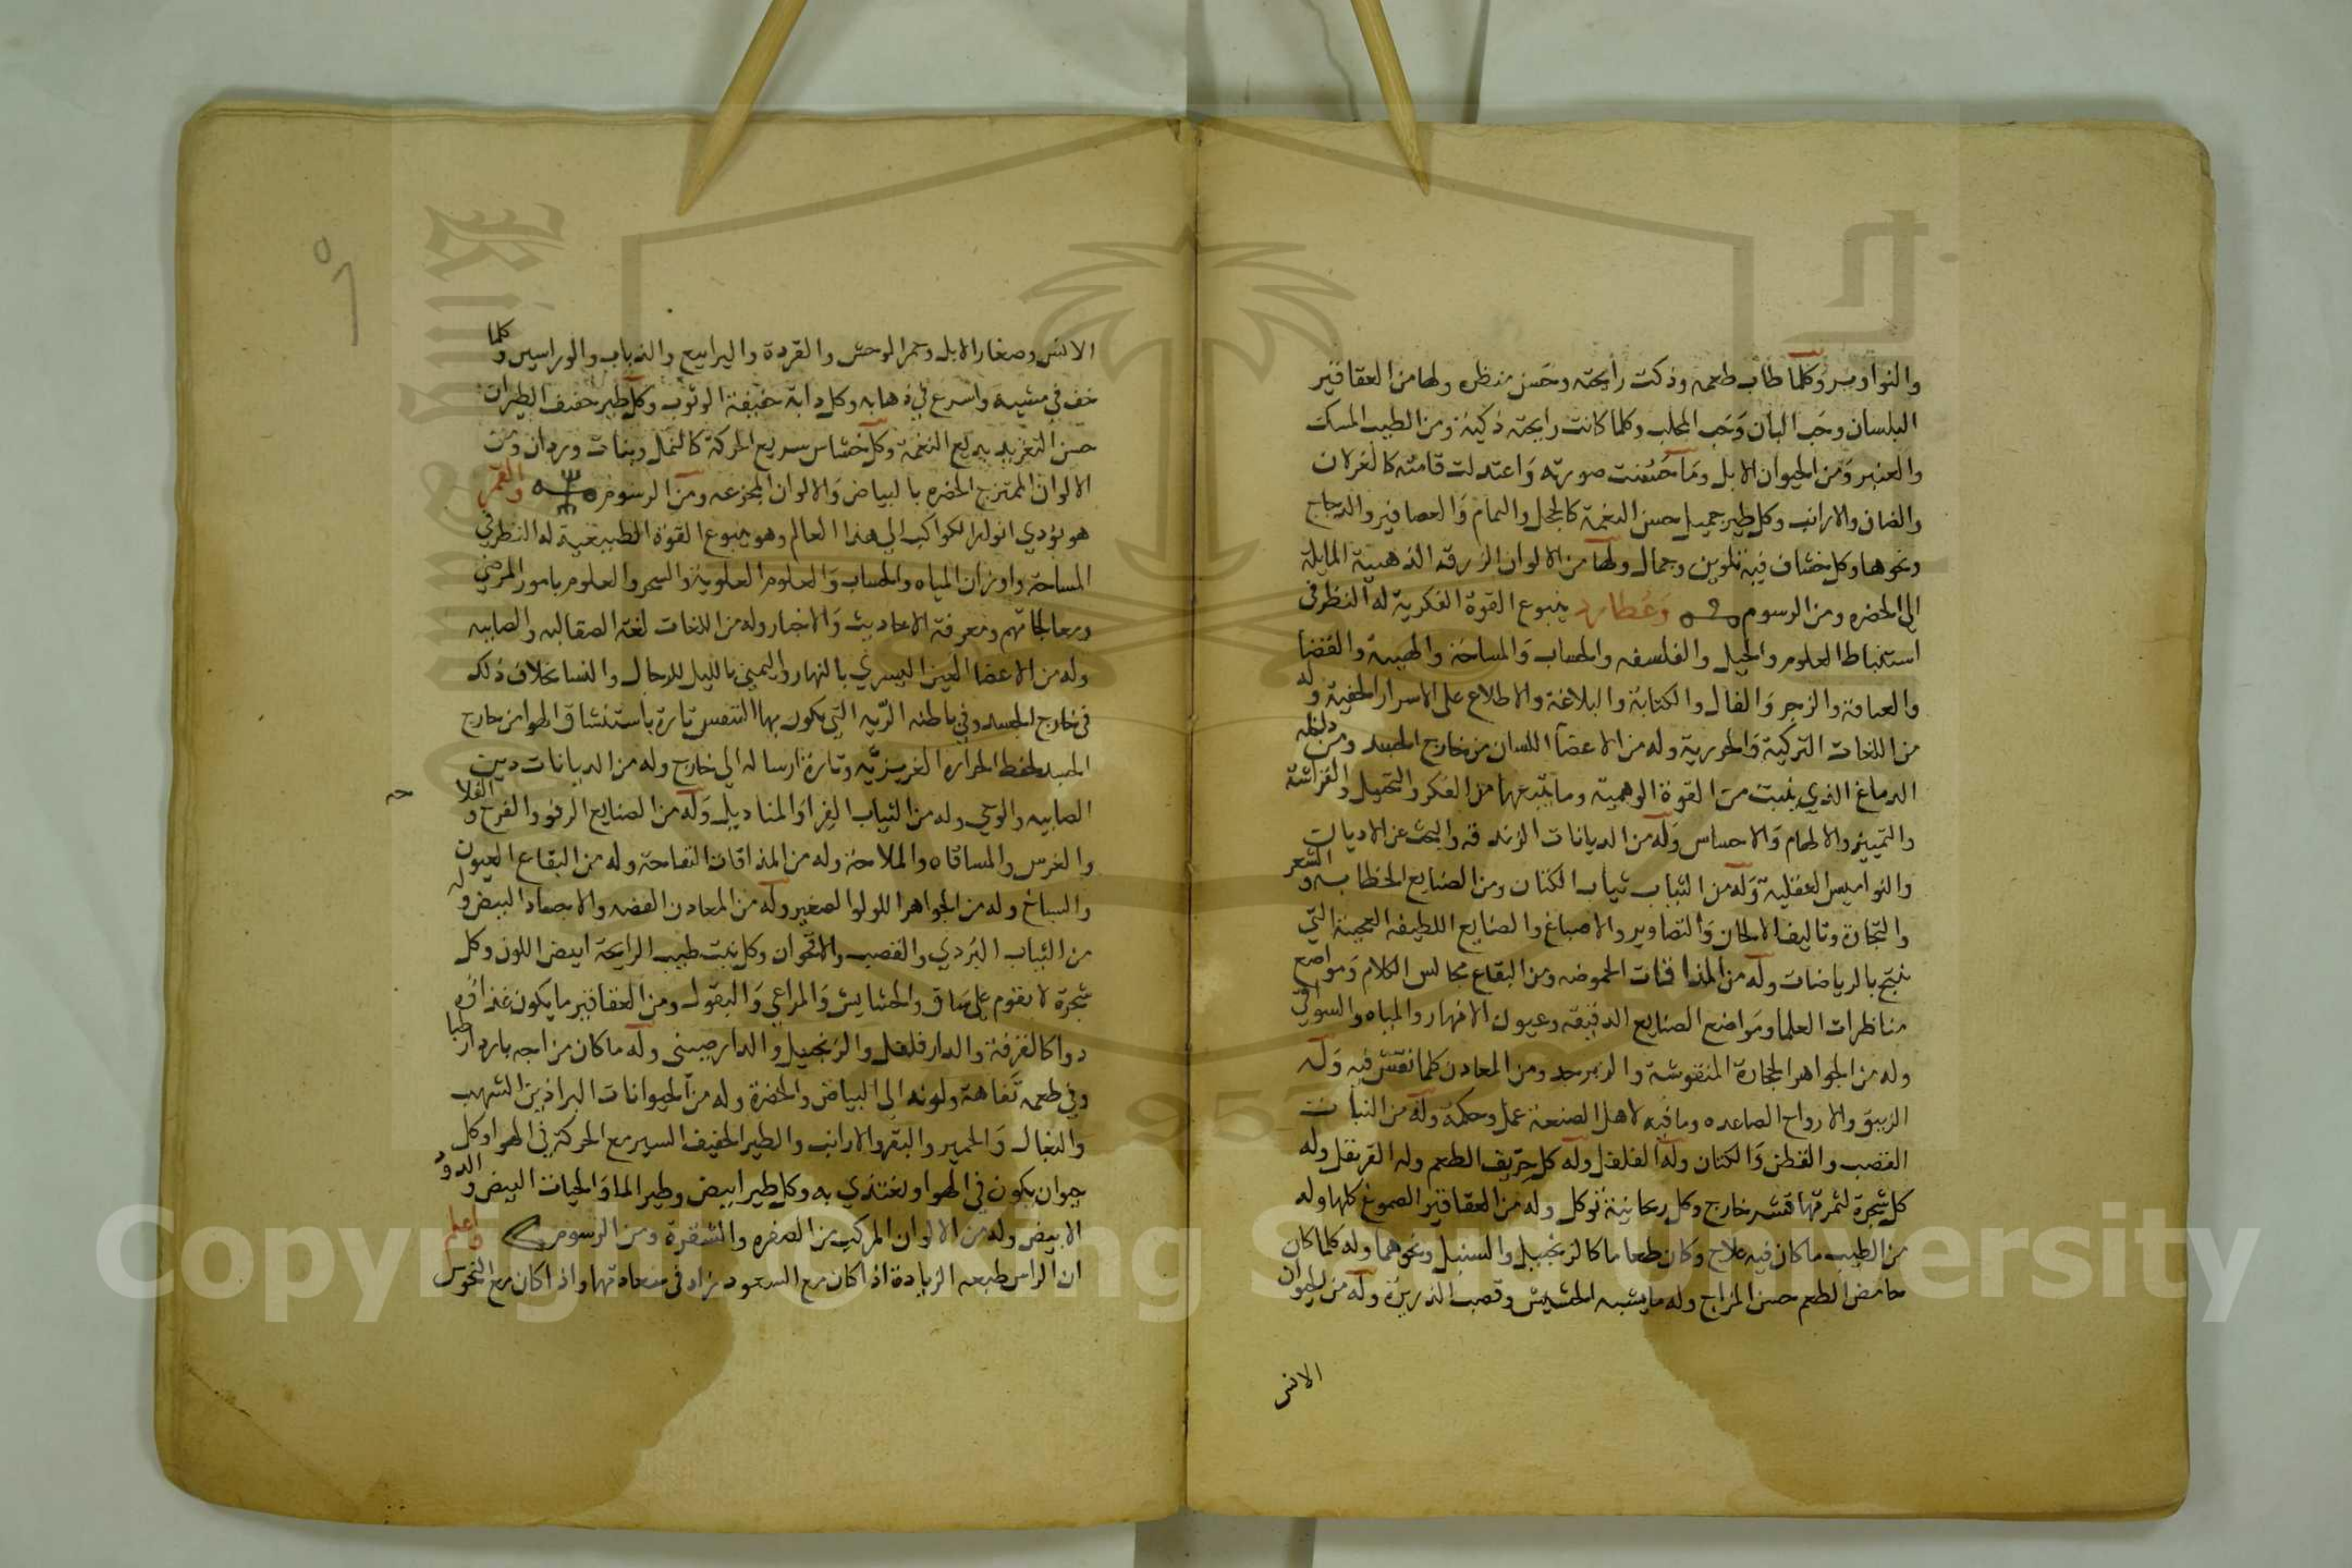 والنواوير وكلما طاب طعمه وذكت رايحته وحسن منظره ولها من العقاقير
البلسان وحب البان وحب المحلب وكلما كانت رايحته ذكية ومن الطيب المسك
والعنبر ومن الحيوان الابل وما حسنت صورته واعتدلت قامته كالغزلان
والضان والارانب وكل طير جميل حسن النغمة كالحجل واليمام والعصافير والدجاج
ونحوها وكل خشاف فيه تلوين وجمال ولها من الالوان الزرقة الذهبية المايلة
الى الخضره ومن الرسوم وعطارد ينبوع القوة الفكرية له النظر في
استنباط العلوم والحيل والفلسفه والحساب والمساحة والهيية والقضا
والعيافة والزجر والفال والكتابة والبلاغة والاطلاع على الاسرار الخفية وله
من اللغات التركية والخورية وله من الاعضا اللسان من خارج الجسد ومن داخله
الدماغ الذي ينبت من القوة الوهمية وما يتبعها من الفكر والتخيل والفراشة
والتمييز والالهام والاحساس وله من الديانات الزندقه والبحث عن الاديان
والنواميس العقلية وله من الثياب ثياب الكتان ومن الصنايع الخطابه والشعر
والتجارة وتاليف الالحان والتصاوير والاصباغ والصنايع اللطيفه العجيبة التي
تنتج بالرياضات وله من المذاقات الحموضه ومن البقاع مجالس الكلام ومواضع
مناظرات العلما ومواضع الصنايع الدقيقه وعيون الانهار والمياه والسواقي
وله من الجواهر الحجارة المنقوشة والزبرجد ومن المعادن كلما نقش فيه وله
الزيبق والارواح الصاعده وما فيه لاهل الصنعة عمل وحكمة وله من النبات
القصب والقطن والكتان وله الفلفل وله كل حريف الطعم وله القرنفل وله
كل شجرة لثمرتها قشر خارج وكل ريحانية توكل وله من العقاقير الصموغ كلها وله
من الطيب ما كان فيه علاج وكان طعاما كالزنجبيل والسنبل ونحوهما وله كلما كان
حامض الطعم حسن المزاج وله ما يشبه الحشيش وقصب الذريرة وله من الحيوان
الانس
الانس وصغار الابل وحمر الوحش والقردة واليرابيع والذباب والوراسين وكلما
خف في مشيه واسرع في ذهابه وكل دابة خفيفة الوثوب وكل طير خفيف الطيران
حسن التغريد بديع النغمة وكل خشاش سريع الحركة كالنمل وبنات وردان ومن
الالوان الممتزج الخضره بالبياض والالوان المجزعه ومن الرسوم والقمر
هو يؤدي انوار الكواكب الى هذا العالم وهو ينبوع القوة الطبيعية له النظر في
المساحة واوزان المياه والحساب والعلوم العلوية والسحر والعلوم بامور المرضى
ومعالجاتهم ومعرفة الاحاديث والاخبار وله من اللغات لغة الصقالبه والصابيه
وله من الاعضا العين اليسرى بالنهار واليمنى بالليل للرجال والنسا بخلاف ذلك
في خارج الجسد وفي باطنه الريه التي يكون بها التنفس تارة باستنشاق الهوا من خارج
الجسد لحفظ الحراره الغريزيه وتارة ارساله الى خارج وله من الديانات دين
الصابيه والوحي وله من الثياب الفرا والمناديل وله من الصنايع الرفو والفرح والفلا
حه
والغرس والمساقاه والملاحة وله من المذاقات التفاحة وله من البقاع العيون
والسباخ وله من الجواهر اللولوا الصغير وله من المعادن الفضه والاجساد البيض وله
من الثياب البردي والقصب والاقحوان وكل نبت طيب الرايحة ابيض اللون وكل
شجرة لا تقوم على ساق والحشايش والمراعي والبقول ومن العقاقير ما يكون غذاؤه
دوا كالقرفة والدارفلفل والزنجبيل والدارصيني وله ما كان مزاجه باردا رطبا
وفي طعمه تفاهة ولونه الى البياض والخضرة وله من الحيوانات البراذين الشهب
والبغال والحمير والبقر والارانب والطير الخفيف السريع الحركة في الهوا وكل
حيوان يكون في الهوا ويغتذي به وكل طير ابيض وطير الما والحيات البيض والدود
الابيض وله من الالوان المركب من الصفره والشقرة ومن الرسوم واعلم
ان الراس طبعه الزيادة اذا كان مع السعود زاد في سعادتها واذا كان مع النحوس
Copyright © King Saud University